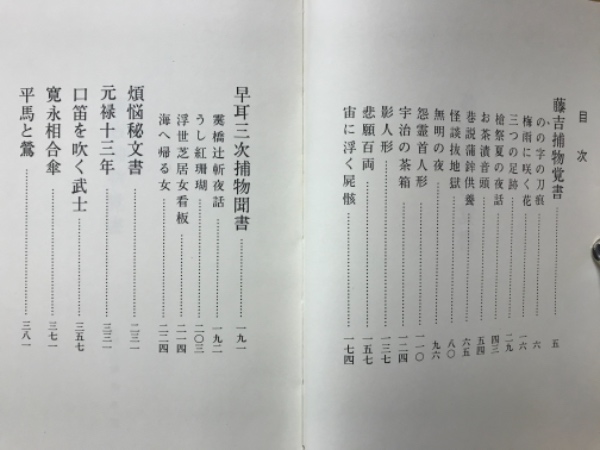 目次
藤吉捕物覚書……五
のの字の刀痕……六
梅雨に咲く花……一六
三つの足跡……二九
槍祭夏の夜話……四三
お茶漬音頭……五四
巷説蒲鉾供養……六五
怪談抜地獄……八〇
無明の夜……九六
怨霊首人形……一一〇
宇治の茶箱……一二四
影人形……一三七
悲願百両……一五七
宙に浮く屍骸……一七四
早耳三次捕物聞書……一九一
霙橋辻斬夜話……一九二
うし紅珊瑚……二〇三
浮世芝居女看板……二一四
海へ帰る女……二二四
煩悩秘文書……二三一
元禄十三年……三三一
口笛を吹く武士……三五七
寛永相合傘……三七一
平馬と鶯……三八一